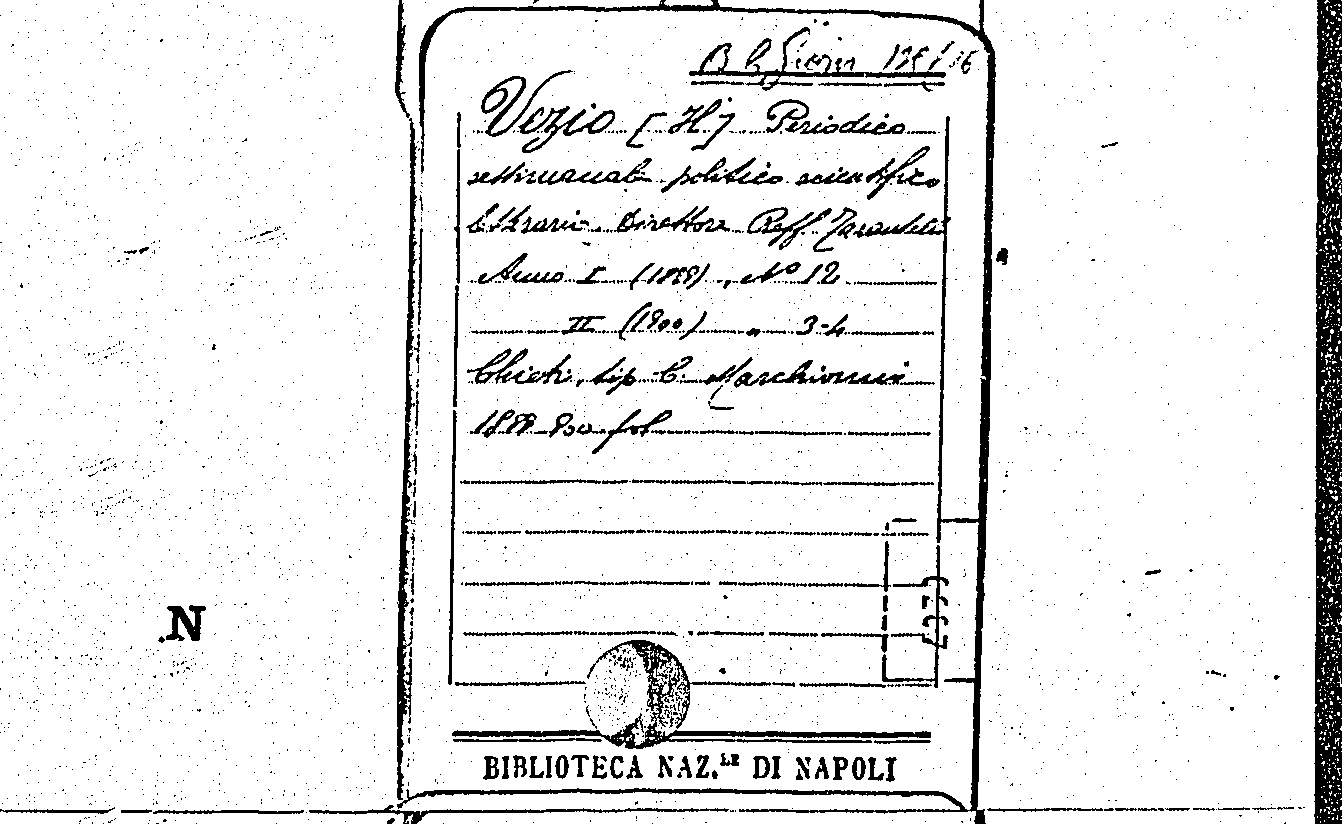 B b Giorn 125/16
Vezio [Il] Periodico
settimanale politico scientifico
letterario. Direttore Raff Zarantelli
Anno I (1899), No 12
II (1900) " 3-4
Chieti, tip C. Marchionni
1899 900 fol
N
BIBLIOTECA NAZ.LE DI NAPOLI